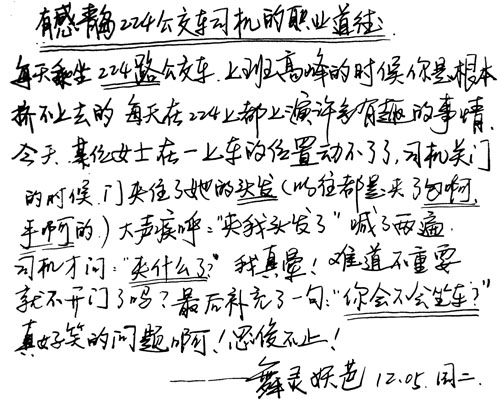 有感静224公交车司机的职业道德
每天乘坐224路公交车、上班高峰的时候你是根本
挤不上去的 每天在224上都上演许多有趣的事情、
今天、某位女士在一上车的位置动不了了,司机关门
的时候、门夹住了她的头发(以往都是夹了包啊、
手啊的、)大声疾呼:“夹我头发了”喊了两遍、
司机才问:“夹什么了?”我真晕!难道不重要
就不开门了吗?最后补充了一句:“你会不会坐车?”
真好笑的问题啊!忍俊不止!
——舞灵妖芭 12.05.周二.